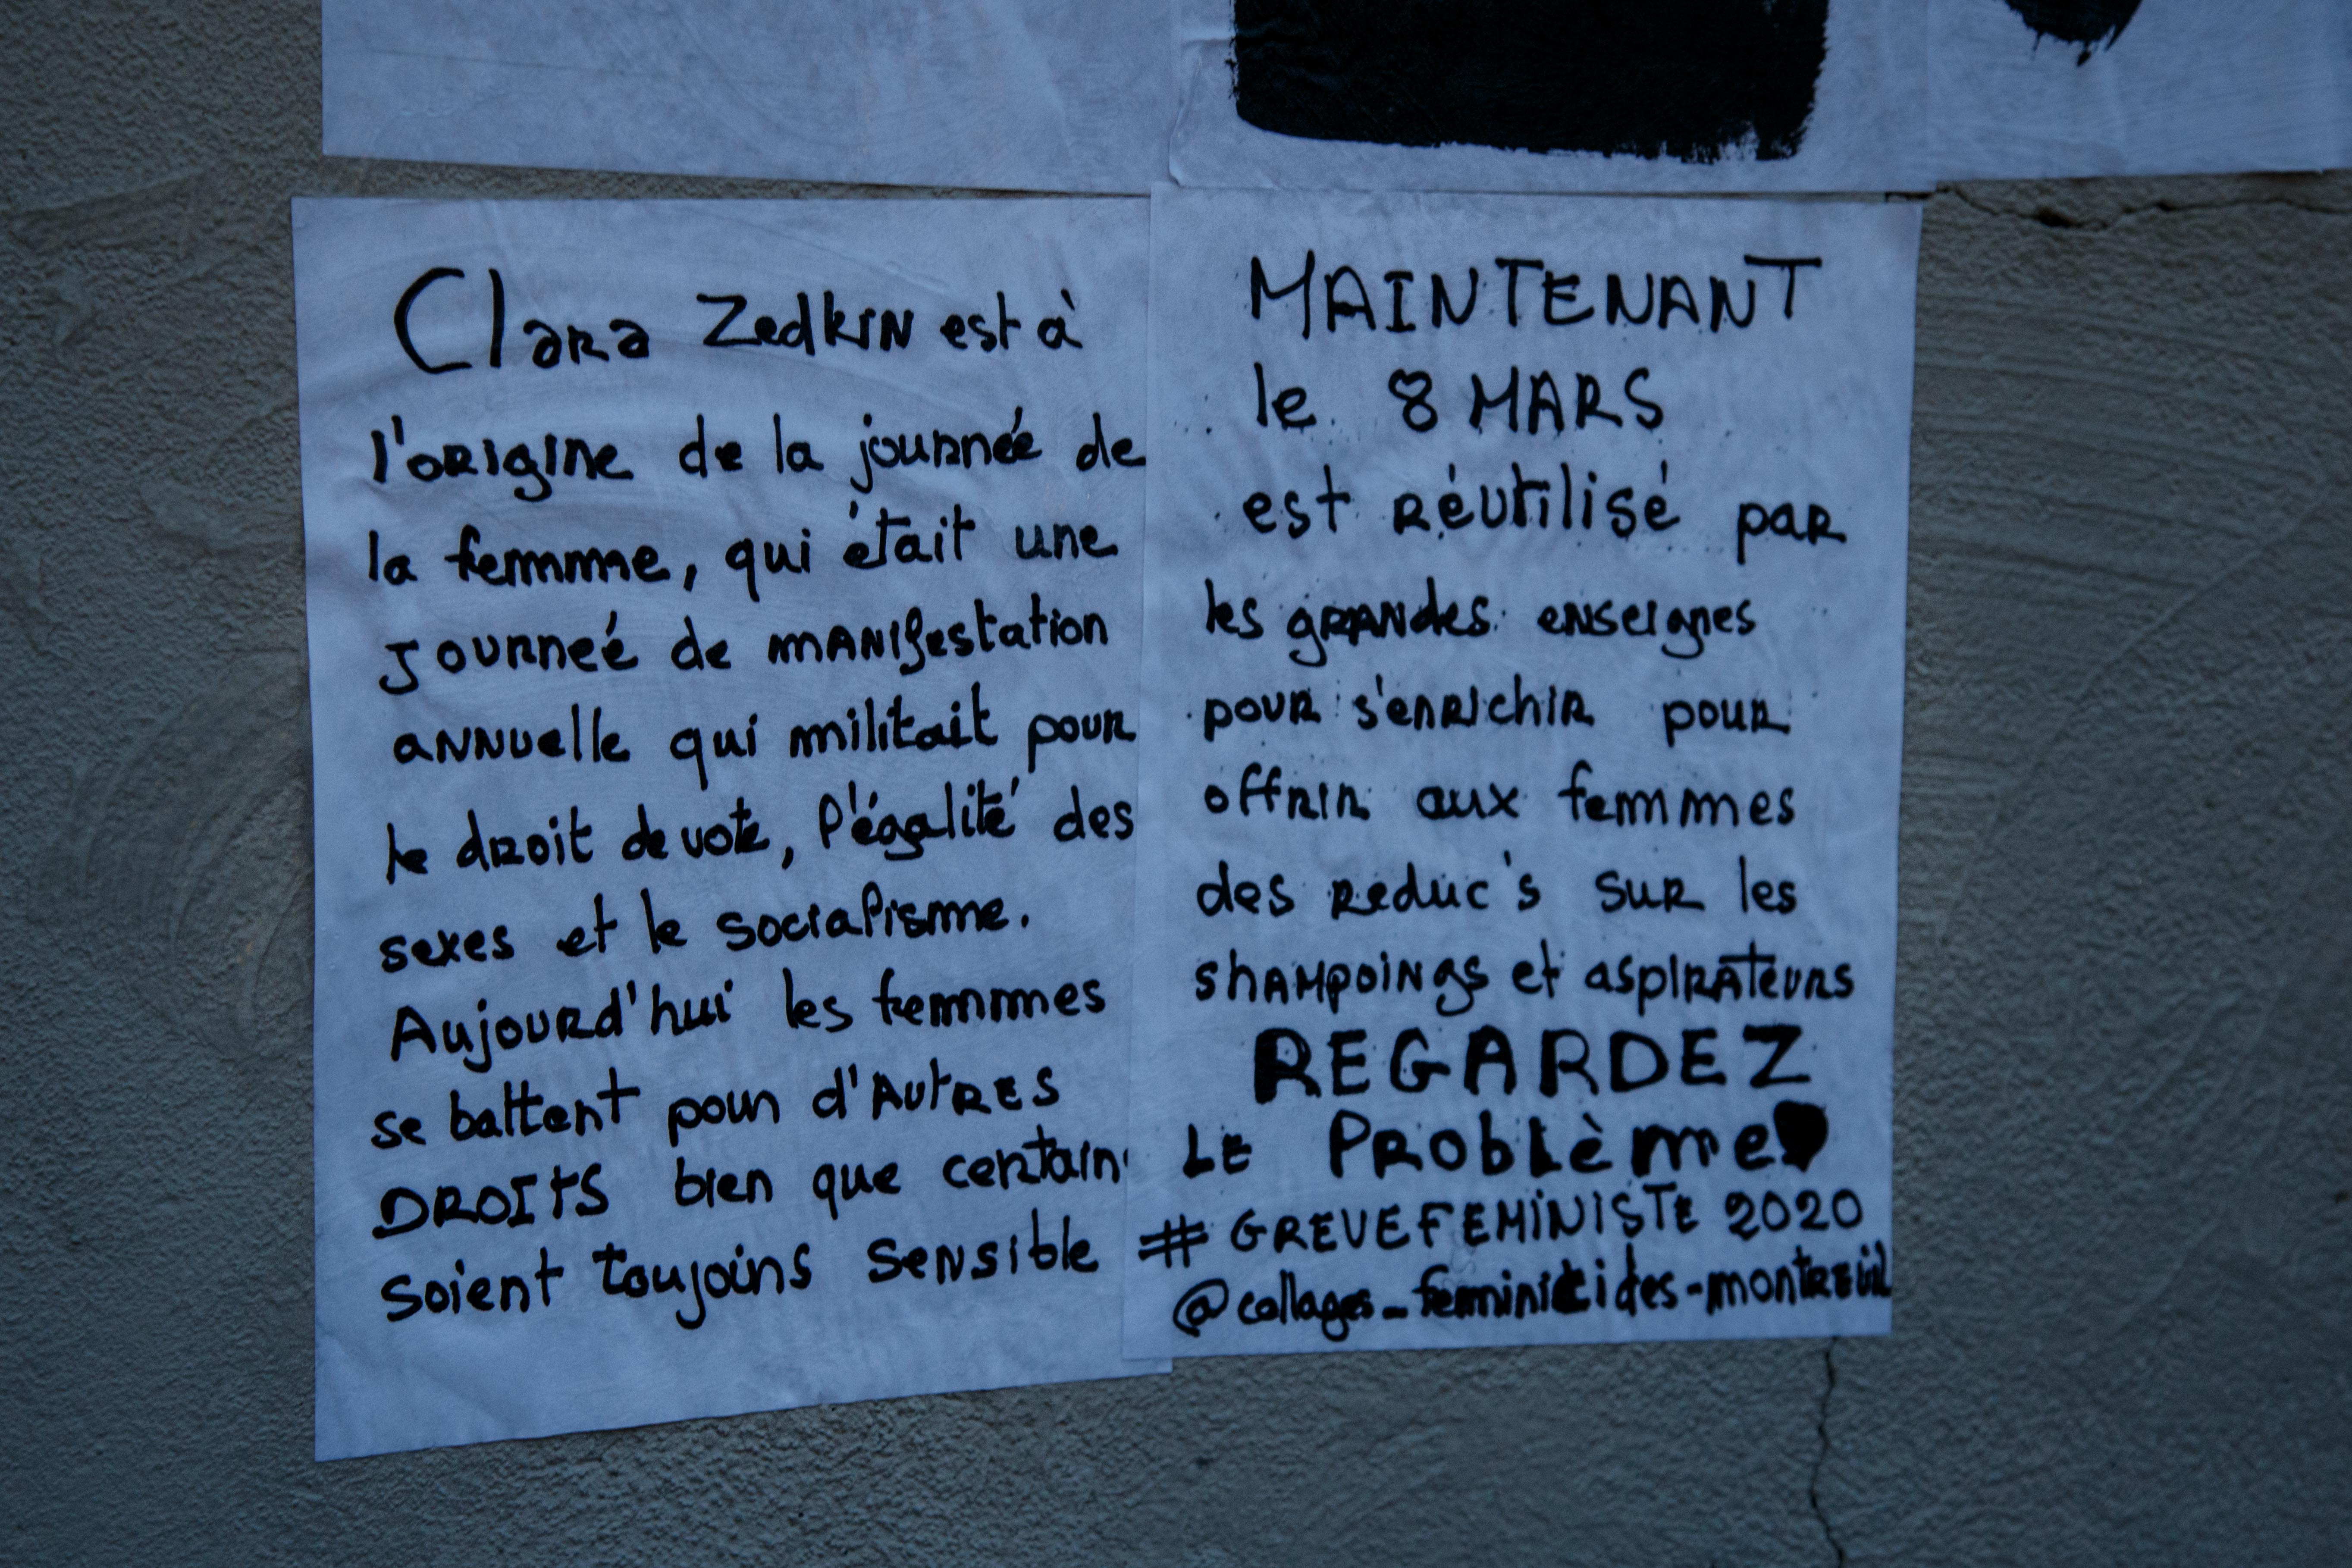 Clara Zedkin est à
l'origine de la journée de
la femme, qui était une
journeé de manifestation
annuelle qui militait pour
le droit de vote, l'égalité des
sexes et le socialisme.
Aujourd'hui les femmes
se battent pour d'Autres
DROITS bien que certain
soient toujours sensible
MAINTENANT
le 8 MARS
est réutilisé par
les grandes enseignes
pour s'enrichir pour
offrir aux femmes
des reduc's sur les
shampoings et aspirateurs
REGARDEZ
LE Problème
# GREVEFEMINISTE 2020
@collages_feminicides-montreuil